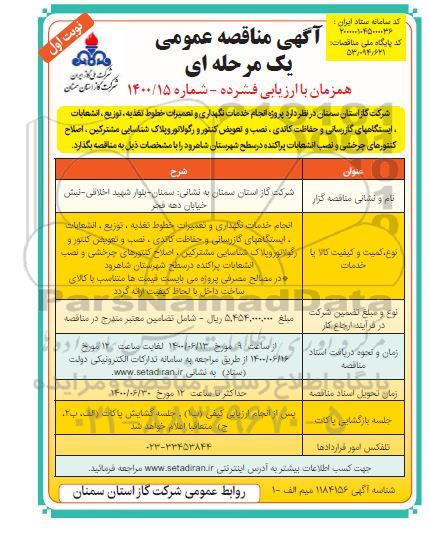 کد سامانه ستاد ایران :
۲۰۰۰۰۰۱۰۴۵۰۰۰۰۳۶
کد پایگاه ملی مناقصات:
۵۳/۰۹۴/۶۲۱
آگهی مناقصه عمومی
یک مرحله ای
نوبت اول
شرکت ملی گاز ایران
شرکت گاز استان سمنان
همزمان با ارزیابی فشرده - شماره ۱۴۰۰/۱۵
شرکت گاز استان سمنان در نظر دارد پروژه انجام خدمات نگهداری و تعمیرات خطوط تغذیه ، توزیع ، انشعابات
، ایستگاههای گازرسانی و حفاظت کاتدی ، نصب و تعویض کنتور و رگولاتور وپلاک شناسایی مشترکین ، اصلاح
کنتورهای چرخشی و نصب انشعابات پراکنده درسطح شهرستان شاهرود را با مشخصات ذیل به مناقصه بگذارد.
عنوان
شرح
نام و نشانی مناقصه گزار
شرکت گاز استان سمنان به نشانی: سمنان-بلوار شهید اخلاقی-نبش
خیابان دهه فجر
نوع،کمیت و کیفیت کالا یا
خدمات
انجام خدمات نگهداری و تعمیرات خطوط تغذیه ، توزیع ، انشعابات
، ایستگاههای گازرسانی و حفاظت کاتدی ، نصب و تعویض کنتور و
رگولاتور وپلاک شناسایی مشترکین ، اصلاح کنتورهای چرخشی و نصب
انشعابات پراکنده درسطح شهرستان شاهرود
*در مصالح مصرفی پروژه می بایست قیمت ها متناسب با کالای
ساخت داخل با لحاظ کیفیت ارائه گردد
نوع و مبلغ تضمین شرکت
در فرآیند ارجاع کار
مبلغ ۵,۴۵۴,۰۰۰,۰۰۰ ریال - شامل تضامین معتبر مندرج در مناقصه
زمان و نحوه دریافت اسناد
مناقصه
از ساعت ۹ مورخ ۱۴۰۰/۰۶/۱۳ لغایت ساعت ۱۲ مورخ
۱۴۰۰/۰۶/۱۶ از طریق مراجعه به سامانه تدارکات الکترونیکی دولت
(ستاد) به نشانی www.setadiran.ir.
زمان تحویل اسناد مناقصه
حداکثر تا ساعت ۱۲ مورخ ۱۴۰۰/۰۶/۳۰
جلسه بازگشایی پاکات
پس از انجام ارزیابی کیفی (ب۱) ، جلسه گشایش پاکات (الف، ب۲،
ج) متعاقبا اعلام خواهد شد
تلفکس امور قراردادها
۰۲۳-۳۳۴۵۳۸۴۴
جهت کسب اطلاعات بیشتر به آدرس اینترنتی www.setadiran.ir مراجعه فرمائید.
شناسه آگهی ۱۱۸۴۱۵۶ میم الف -۱
روابط عمومی شرکت گاز استان سمنان
ParsNamadData